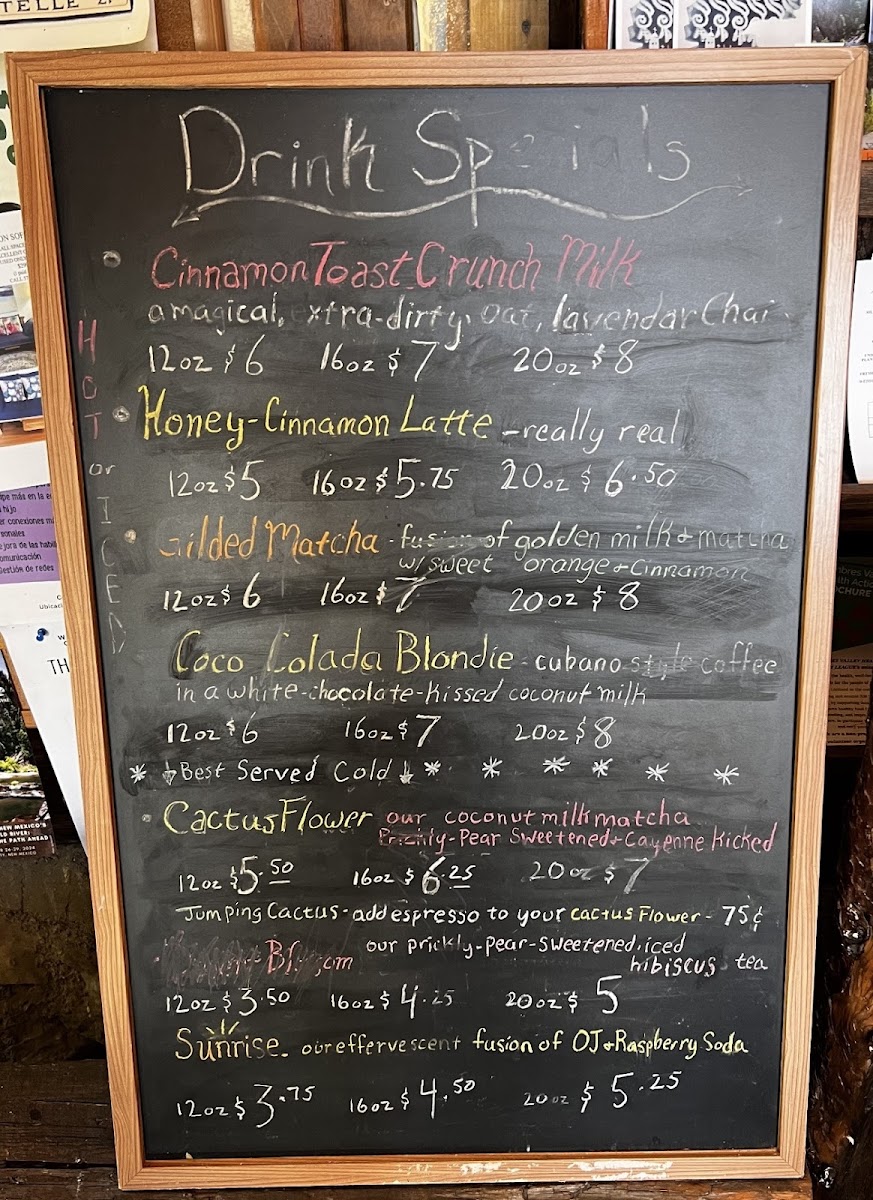 Drink Specials
Cinnamon Toast Crunch Milk
a magical, extra-dirty, oat, lavendar Chai
12oz $6 16oz $7 20oz $8
HOT or ICED
Honey-Cinnamon Latte - really real
12oz $5 16oz $5.75 20oz $6.50
Gilded Matcha - fusion of golden milk + matcha
w/ sweet orange + cinnamon
12oz $6 16oz $7 20oz $8
Coco Colada Blondie - cubano style coffee
in a white-chocolate-kissed coconut milk
12oz $6 16oz $7 20oz $8
* ↓Best Served Cold↓ * * * * * *
Cactus Flower our coconut milk matcha
Prickly-Pear Sweetened + Cayenne Kicked
12oz $5.50 16oz $6.25 20oz $7
Jumping Cactus - add espresso to your cactus Flower - 75¢
our prickly-pear-sweetened, iced
hibiscus tea
12oz $3.50 16oz $4.25 20oz $5
Sunrise - our effervescent fusion of OJ + Raspberry Soda
12oz $3.75 16oz $4.50 20oz $5.25